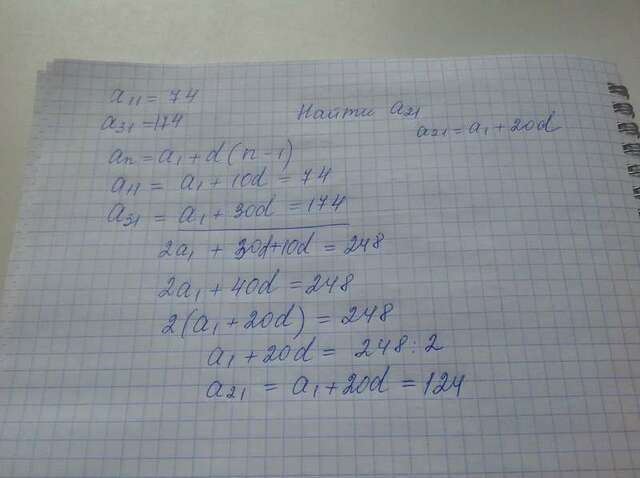 a₁₁ = 74
a₃₁ = 174
Найти a₂₁
a₂₁ = a₁ + 20d
aₙ = a₁ + d(n-1)
a₁₁ = a₁ + 10d = 74
a₃₁ = a₁ + 30d = 174
2a₁ + 30d+10d = 248
2a₁ + 40d = 248
2(a₁ + 20d) = 248
a₁ + 20d = 248:2
a₂₁ = a₁ + 20d = 124